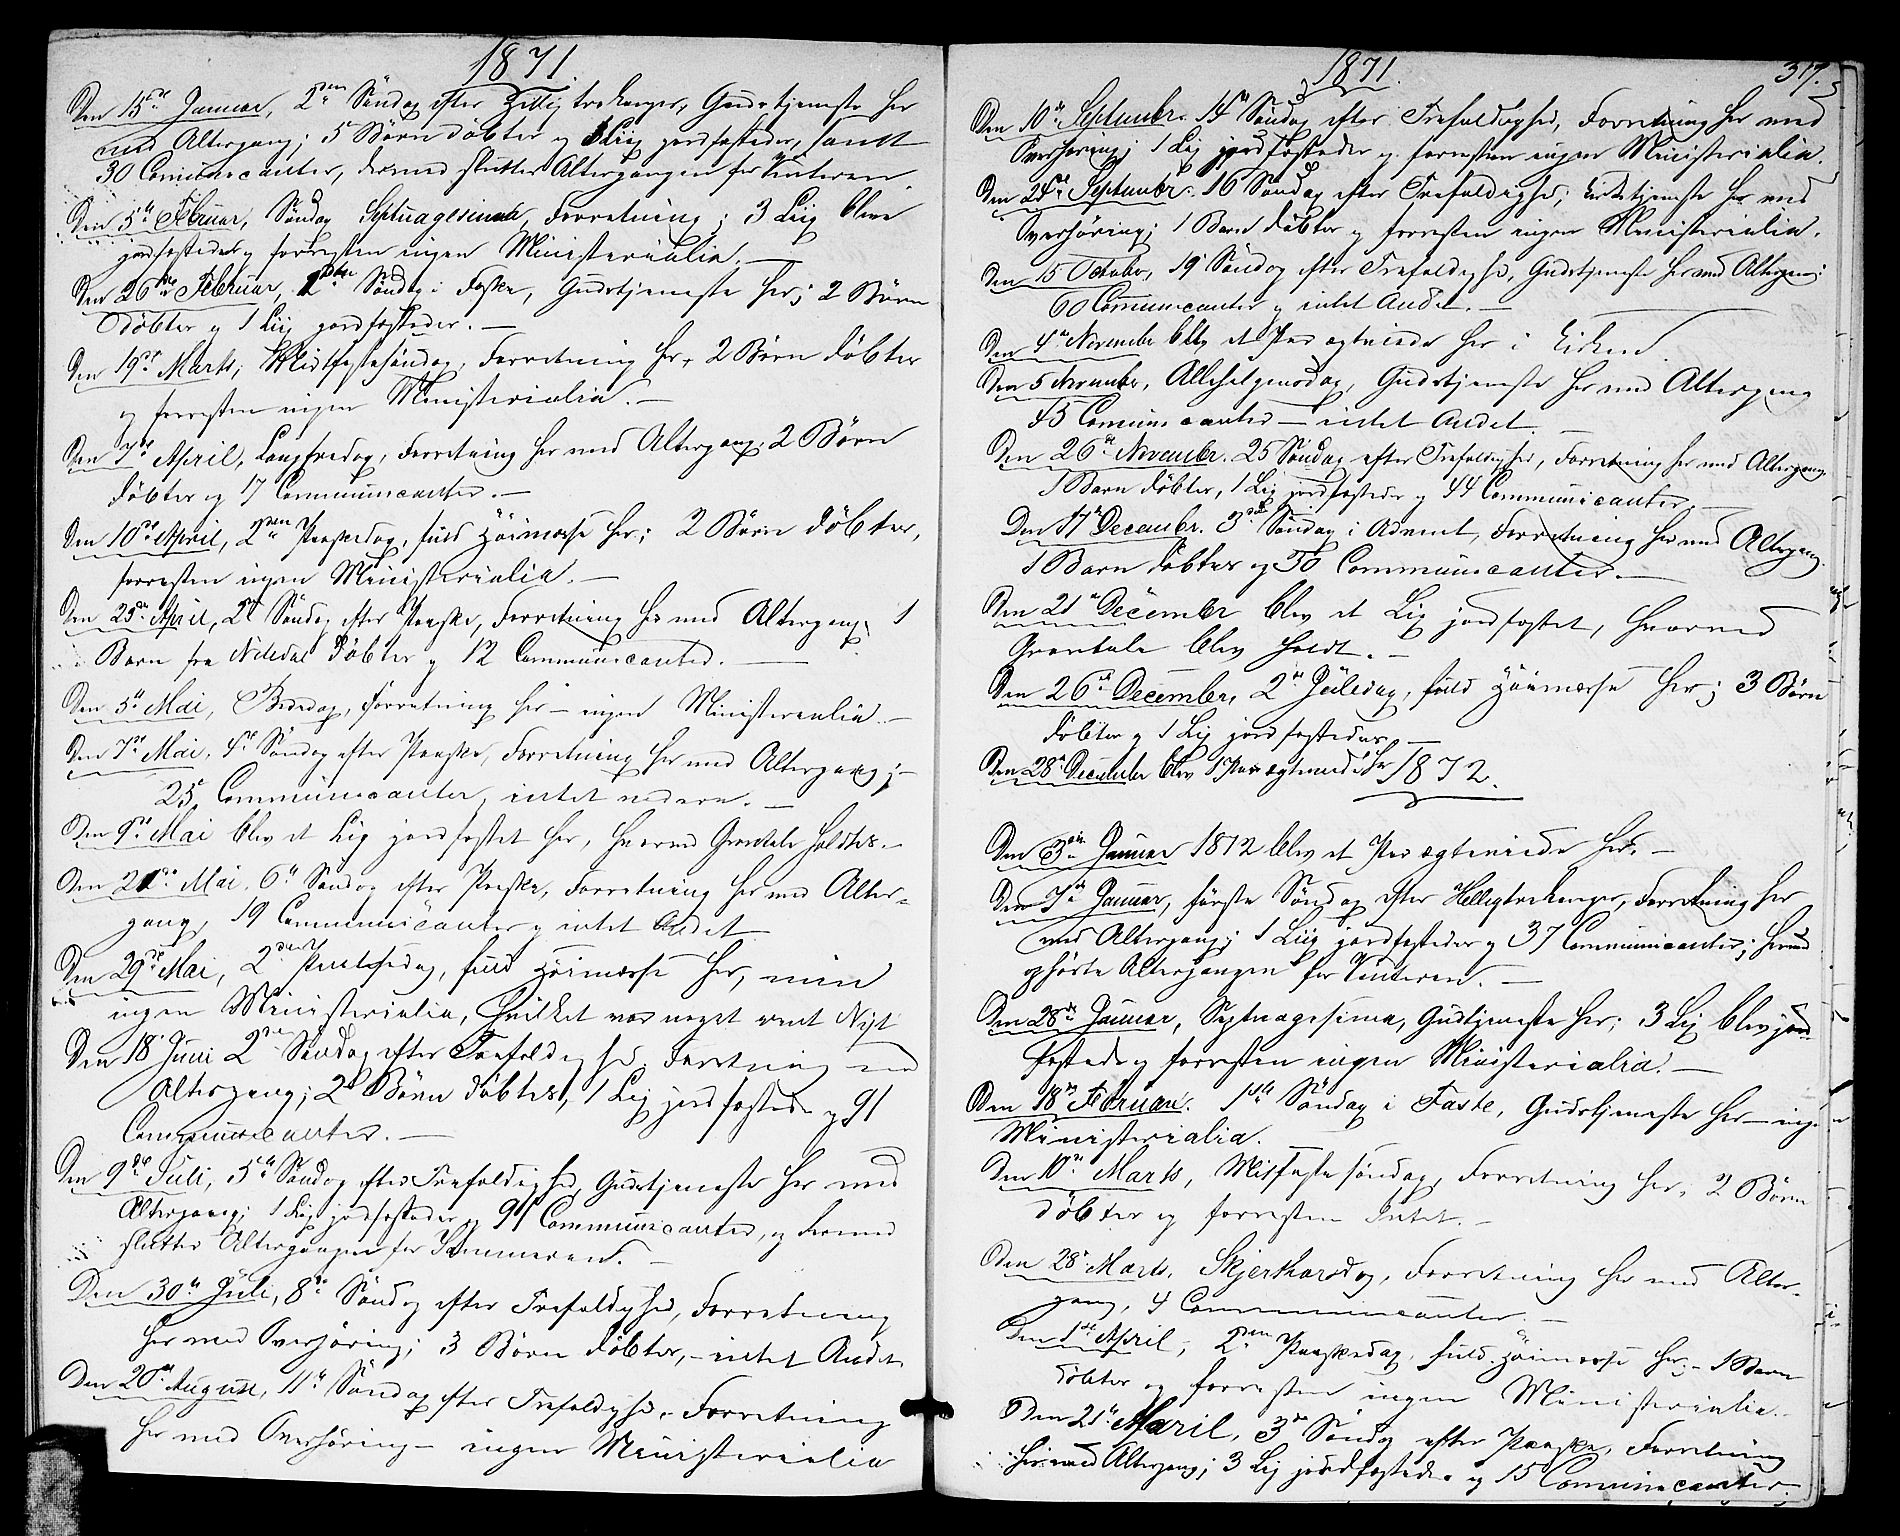 1871.
Den 15de Januar, 2den Søndag efter Hellig trekonger, Gudstjeneste her
med Altergang; 5 Børn døbtes og Liig jordfæstedes, samt
30 Comunicanter, dermed sluttes Altergangen for Vinteren.
Den 5te Februar, Søndag Septuagesima, Forretning; 3 Liig bleve
jordfæstede og forresten ingen Ministerialia.—
Den 26de Februar, Søndag i Faste, Gudstjeneste her; 2 Børn
døbtes og 1 Liig jordfæstedes.—
Den 19de Marts, Midfastesøndag, Forretning her, 2 Børn døbtes
og forresten ingen Ministerialia.—
Den 7de April, Langfredag, Forretning her med Altergang; 2 Børn
døbtes og 17 Communicanter.—
Den 10de April, 2den Paaskedag, fuld Høimesse her; 2 Børn døbtes,
forresten ingen Ministerialia.—
Den 23de April, 2den Søndag efter Paaske, Forretning her med Altergang; 1
Barn fra Nitedal døbtes og 12 Communicanter.—
Den 5te Mai, Bededag, Forretning her – ingen Ministerialia.—
Den 7de Mai, 4de Søndag efter Paaske, Forretning her med Altergang;–
25 Communicanter, intet videre.—
Den 9de Mai blev et Lig jordfæstet her, hvorved Gravtale holdtes.—
Den 21de Mai, 6te Søndag efter Paaske, Forretning her med Alter-
gang, 19 Communicanter og intet Andet
Den 29de Mai, 2den Pintsedag, fuld Høimesse her, men
ingen Ministerialia, hvilket var noget rent Nyt
Den 18 Juni 2den Søndag efter Trefoldighed, Forretning med
Altergang; 2 Børn døbtes, 1 Lig jordfæstedes og 91
Communicanter.—
Den 9de Juli, 5te Søndag efter Trefoldighed, Gudstjeneste her med
Altergang; 1 Lig jordfæstedes og 91 Communicanter, og dermed
sluttes Altergangen for Sommeren.—
Den 30te Juli, 8de Søndag efter Trefoldighed, Forretning
her med Overhøring; 3 Børn døbtes, – intet Andet
Den 20de August, 11te Søndag efter Trefoldighed, Forretning
her med Overhøring – ingen Ministerialia
1871.
317.
Den 10de Septembr. 14de Søndag efter Trefoldighed, Forretning her med
Overhøring; 1 Lig jordfæstedes og forresten ingen Ministerialia.
Den 24de Septembr. 16 Søndag efter Trefoldighed; Kirketjeneste her med
Overhøring; 1 Barn døbtes og forresten ingen Ministerialia.
Den 15 October, 19 Søndag efter Trefoldighed, Gudstjeneste her med Altergang;
60 Communicanter og intet Andet.—
Den 4de November blev et Par ægteviede her i Kirken.
Den 5 November, Allehelgensdag, Gudstjeneste her med Altergang
45 Comunicanter – intet Andet.—
Den 26de Novembr. 25 Søndag efter Trefoldighed, Forretning her med Altergang.
1 Barn døbtes, 1 Lig jordfæstedes og 44 Communicanter.—
Den 17de Decembr. 3die Søndag i Advent, Forretning her med Altergang.
1 Barn døbtes og 30 Communicanter.—
Den 21de December blev et Lig jordfæstet, hvorved
Gravtale blev holdt.—
Den 26de December, 2den Juledag, fuld Høimesse her; 3 Børn
døbtes og 1 Lig jordfæstedes.—
Den 28de December blev 1 Par ægteviede her
1872.
Den 3die Januar 1872 blev et Par ægteviede her.—
Den 7de Januar, første Søndag efter Helligtrekonger, Forretning her
med Altergang; 1 Liig jordfæstedes og 37 Communicanter; hermed
ophørte Altergangen for Vinteren.—
Den 28de Januar, Septuagesima, Gudstjeneste her; 3 Lig blev jord-
fæstede og forresten ingen Ministerialia.—
Den 18de Februar. 1ste Søndag i Faste, Gudstjeneste her – ingen
Ministerialia.—
Den 10de Marts, Midfastesøndag, Forretning her, 2 Børn
døbtes og forresten Intet.—
Den 28de Marts, Skjerthorsdag, Forretning her med Alter-
gang, 4 Communicanter.—
Den 1ste April, 2den Paaskedag, fuld Høimesse her; – 1 Barn
døbtes og forresten ingen Ministerialia.—
Den 21de April, 3de Søndag efter Paaske, Forretning
her med Altergang; 3 Lig jordfæstedes og 15 Communicanter;